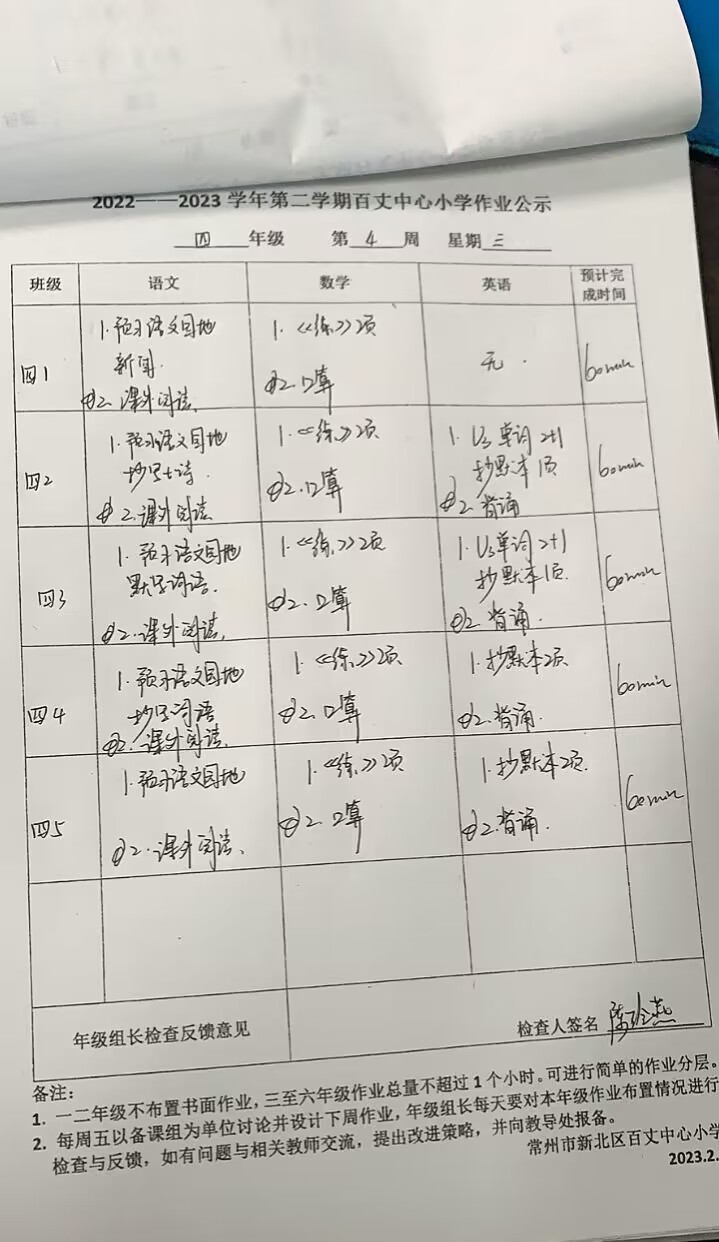 2022——2023 学年第二学期百丈中心小学作业公示
四 年级 第 4 周 星期 三
班级 语文 数学 英语 预计完成时间
四1
1.预习语文园地
新闻.
2.课外阅读.
1.《练》2页
2.口算
无.
60min
四2
1.预习语文园地
抄写古诗.
2.课外阅读
1.《练》2页
2.口算
1.U3单词2+1
抄默本1页
2.背诵
60min
四3
1.预习语文园地
默写词语.
2.课外阅读.
1.《练》2页
2.口算
1.U3单词2+1
抄默本1页.
2.背诵.
60min
四4
1.预习语文园地
抄写词语
2.课外阅读.
1.《练》2页
2.口算
1.抄默本2页
2.背诵.
60min
四5
1.预习语文园地
2.课外阅读.
1.《练》2页
2.口算
1.抄默本2页.
2.背诵.
60min
年级组长检查反馈意见
检查人签名
备注：
1. 一二年级不布置书面作业，三至六年级作业总量不超过 1 个小时。可进行简单的作业分层。
2. 每周五以备课组为单位讨论并设计下周作业，年级组长每天要对本年级作业布置情况进行
检查与反馈，如有问题与相关教师交流，提出改进策略，并向教导处报备。
常州市新北区百丈中心小学
2023.2.